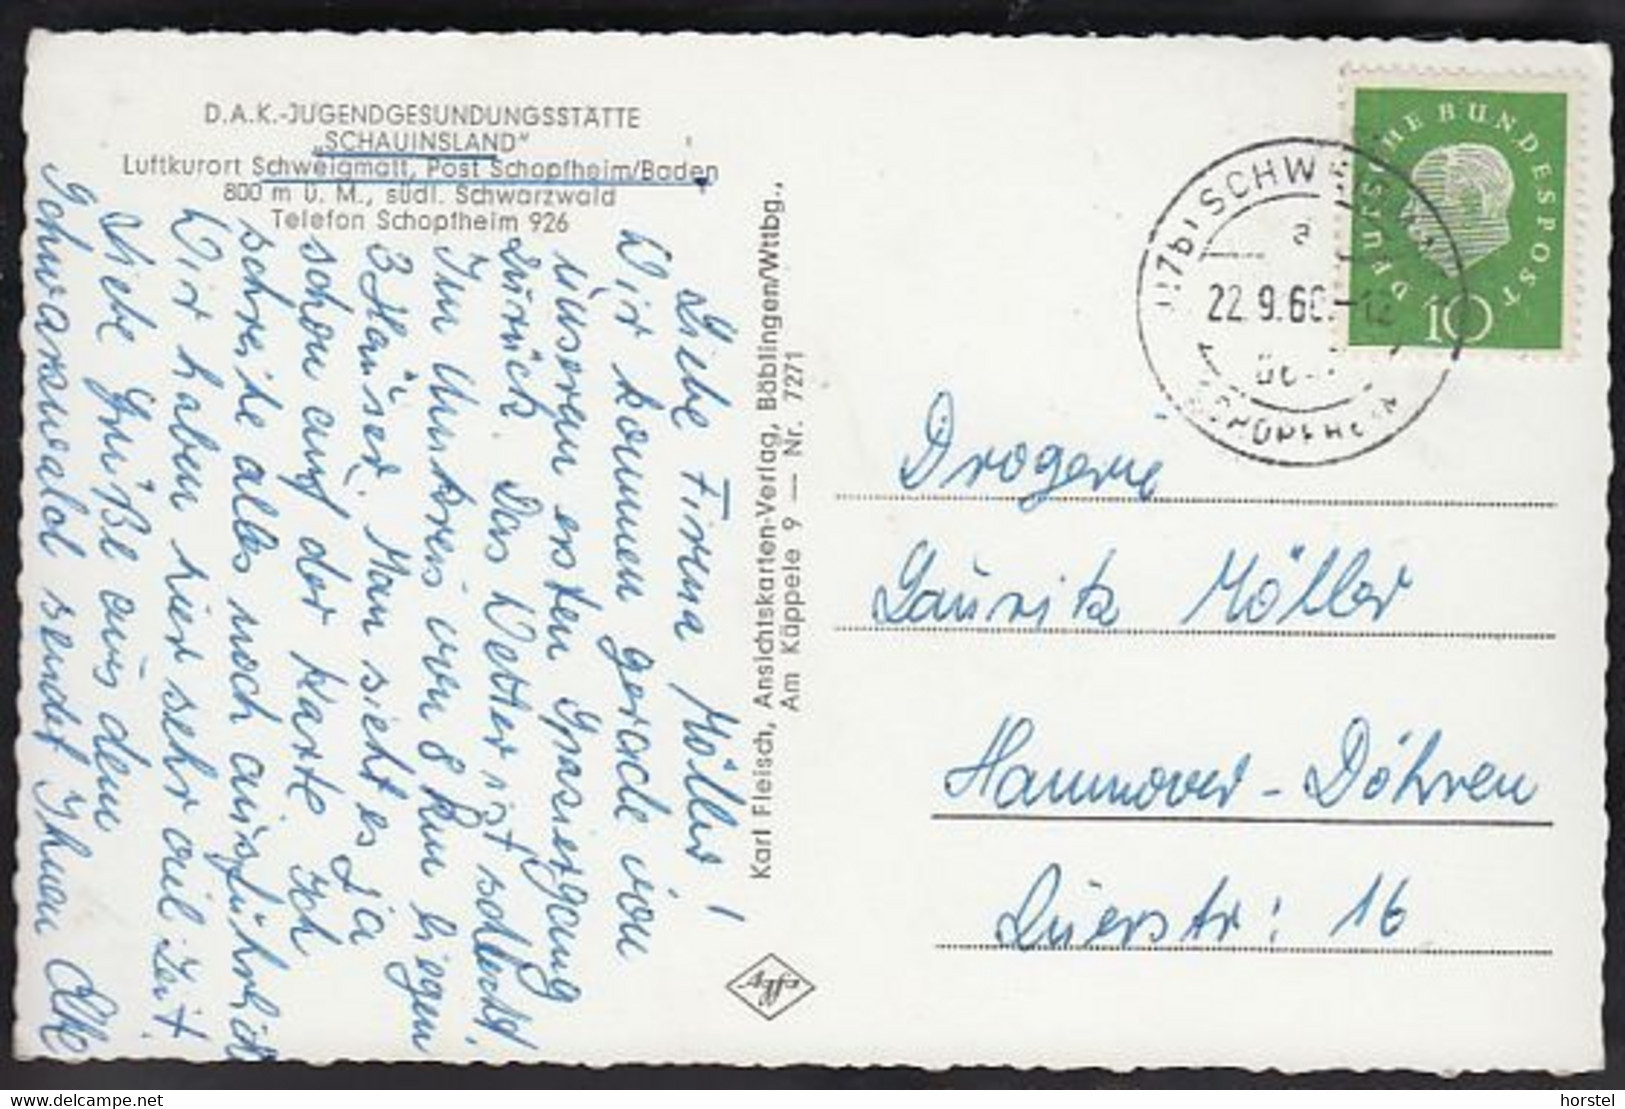 D.A.K.-JUGENDGESUNDUNGSSTÄTTE
„SCHAUINSLAND"
Luftkurort Schweigmatt, Post Schopfheim/Baden
800 m ü. M., südl. Schwarzwald
Telefon Schopfheim 926
Liebe Firma Möller!
Wir kommen gerade von
unserem ersten Spaziergang
zurück. Das Wetter ist schlecht.
Im Umkreis von 8 km liegen
3 Häuser. Man sieht es ja
schon auf der Karte. Ich
schreibe alles noch ausführlich
Wir haben hier sehr viel Zeit.
Liebe Grüße aus dem
Schwarzwald sendet Ihnen Elke
Karl Fleisch, Ansichtskarten-Verlag, Böblingen/Wttbg.,
Am Käppele 9 — Nr. 7271
Agfa
DEUTSCHE BUNDESPOST
10
(17b) SCHW
a
22.9.60.-12
über
SCHOPFHEIM
Drogerie
Lauritz Möller
Hannover-Döhren
Querstr: 16
horstel
https://www.delcampe.net